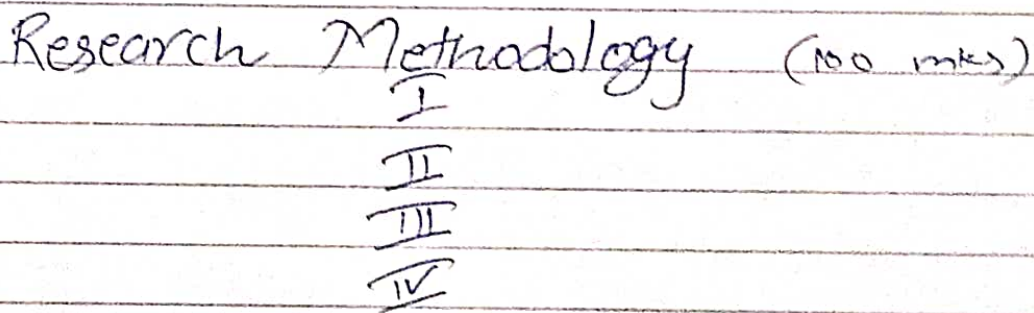 Research Methodology (100 mks)
I
II
III
IV